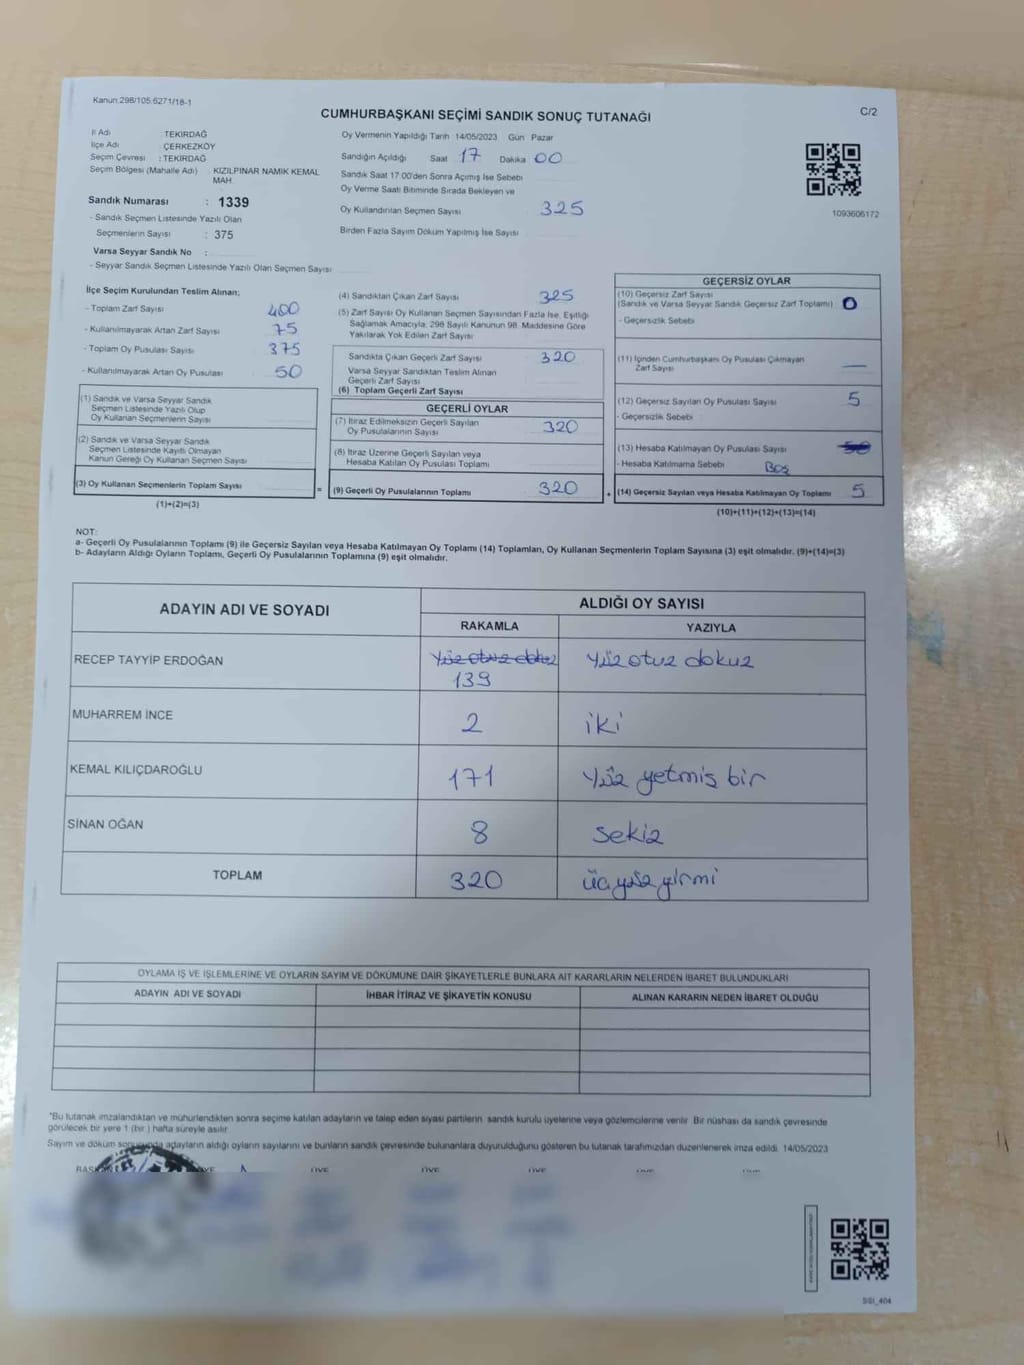 Kanun:298/105.6271/18-1
CUMHURBAŞKANI SEÇİMİ SANDIK SONUÇ TUTANAĞI
C/2
İl Adı : TEKİRDAĞ
İlçe Adı : ÇERKEZKÖY
Seçim Çevresi : TEKİRDAĞ
Seçim Bölgesi (Mahalle Adı) KIZILPINAR NAMIK KEMAL
MAH.
Sandık Numarası : 1339
- Sandık Seçmen Listesinde Yazılı Olan
Seçmenlerin Sayısı : 375
Varsa Seyyar Sandık No :
- Seyyar Sandık Seçmen Listesinde Yazılı Olan Seçmen Sayısı
Oy Vermenin Yapıldığı Tarih 14/05/2023 Gün Pazar
Sandığın Açıldığı Saat 17 Dakika 00
Sandık Saat 17:00'den Sonra Açımış İse Sebebi
Oy Verme Saati Bitiminde Sırada Bekleyen ve
Oy Kullandırılan Seçmen Sayısı 325
Birden Fazla Sayım Döküm Yapılmış İse Sayısı
1093606172
İlçe Seçim Kurulundan Teslim Alınan;
- Toplam Zarf Sayısı 400
- Kullanılmayarak Artan Zarf Sayısı 75
- Toplam Oy Pusulası Sayısı 375
- Kullanılmayarak Artan Oy Pusulası 50
(1) Sandık ve Varsa Seyyar Sandık
Seçmen Listesinde Yazılı Olup
Oy Kullanan Seçmenlerin Sayısı
(2) Sandık ve Varsa Seyyar Sandık
Seçmen Listesinde Kayıtlı Olmayan
Kanun Gereği Oy Kullanan Seçmen Sayısı
(3) Oy Kullanan Seçmenlerin Toplam Sayısı
(1)+(2)=(3)
(4) Sandıktan Çıkan Zarf Sayısı 325
(5) Zarf Sayısı Oy Kullanan Seçmen Sayısından Fazla İse, Eşitliği
Sağlamak Amacıyla; 298 Sayılı Kanunun 98. Maddesine Göre
Yakılarak Yok Edilen Zarf Sayısı
Sandıkta Çıkan Geçerli Zarf Sayısı 320
Varsa Seyyar Sandıktan Teslim Alınan
Geçerli Zarf Sayısı
(6) Toplam Geçerli Zarf Sayısı
GEÇERLİ OYLAR
(7) İtiraz Edilmeksizin Geçerli Sayılan
Oy Pusulalarının Sayısı 320
(8) İtiraz Üzerine Geçerli Sayılan veya
Hesaba Katılan Oy Pusulası Toplamı
= (9) Geçerli Oy Pusulalarının Toplamı 320 +
GEÇERSİZ OYLAR
(10) Geçersiz Zarf Sayısı
(Sandık ve Varsa Seyyar Sandık Geçersiz Zarf Toplamı) 0
- Geçersizlik Sebebi
(11) İçinden Cumhurbaşkanı Oy Pusulası Çıkmayan
Zarf Sayısı —
(12) Geçersiz Sayılan Oy Pusulası Sayısı 5
- Geçersizlik Sebebi
(13) Hesaba Katılmayan Oy Pusulası Sayısı 50
- Hesaba Katılmama Sebebi Boş
(14) Geçersiz Sayılan veya Hesaba Katılmayan Oy Toplamı 5
(10)+(11)+(12)+(13)=(14)
NOT:
a- Geçerli Oy Pusulalarının Toplamı (9) ile Geçersiz Sayılan veya Hesaba Katılmayan Oy Toplamı (14) Toplamları, Oy Kullanan Seçmenlerin Toplam Sayısına (3) eşit olmalıdır. (9)+(14)=(3)
b- Adayların Aldığı Oyların Toplamı, Geçerli Oy Pusulalarının Toplamına (9) eşit olmalıdır.
ADAYIN ADI VE SOYADI
ALDIĞI OY SAYISI
RAKAMLA YAZIYLA
RECEP TAYYİP ERDOĞAN Yüz otuz dokuz Yüz otuz dokuz
139
MUHARREM İNCE 2 iki
KEMAL KILIÇDAROĞLU 171 Yüz yetmiş bir
SİNAN OĞAN 8 sekiz
TOPLAM 320 üçyüz yirmi
OYLAMA İŞ VE İŞLEMLERİNE VE OYLARIN SAYIM VE DÖKÜMÜNE DAİR ŞİKAYETLERLE BUNLARA AİT KARARLARIN NELERDEN İBARET BULUNDUKLARI
ADAYIN ADI VE SOYADI İHBAR İTİRAZ VE ŞİKAYETİN KONUSU ALINAN KARARIN NEDEN İBARET OLDUĞU
"Bu tutanak imzalandıktan ve mühürlendikten sonra seçime katılan adayların ve talep eden siyasi partilerin sandık kurulu üyelerine veya gözlemcilerine verilir. Bir nüshası da sandık çevresinde
görülecek bir yere 1 (bir) hafta süreyle asılır.
Sayım ve döküm sonucunda adayların aldığı oyların sayılarını ve bunların sandık çevresinde bulunanlara duyurulduğunu gösteren bu tutanak tarafımızdan düzenlenerek imza edildi. 14/05/2023
SSI_404